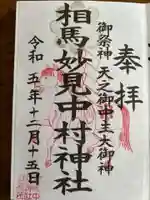 奉拝
御祭神 天之御中主大御神
相馬妙見中村神社
令和五年十二月十五日